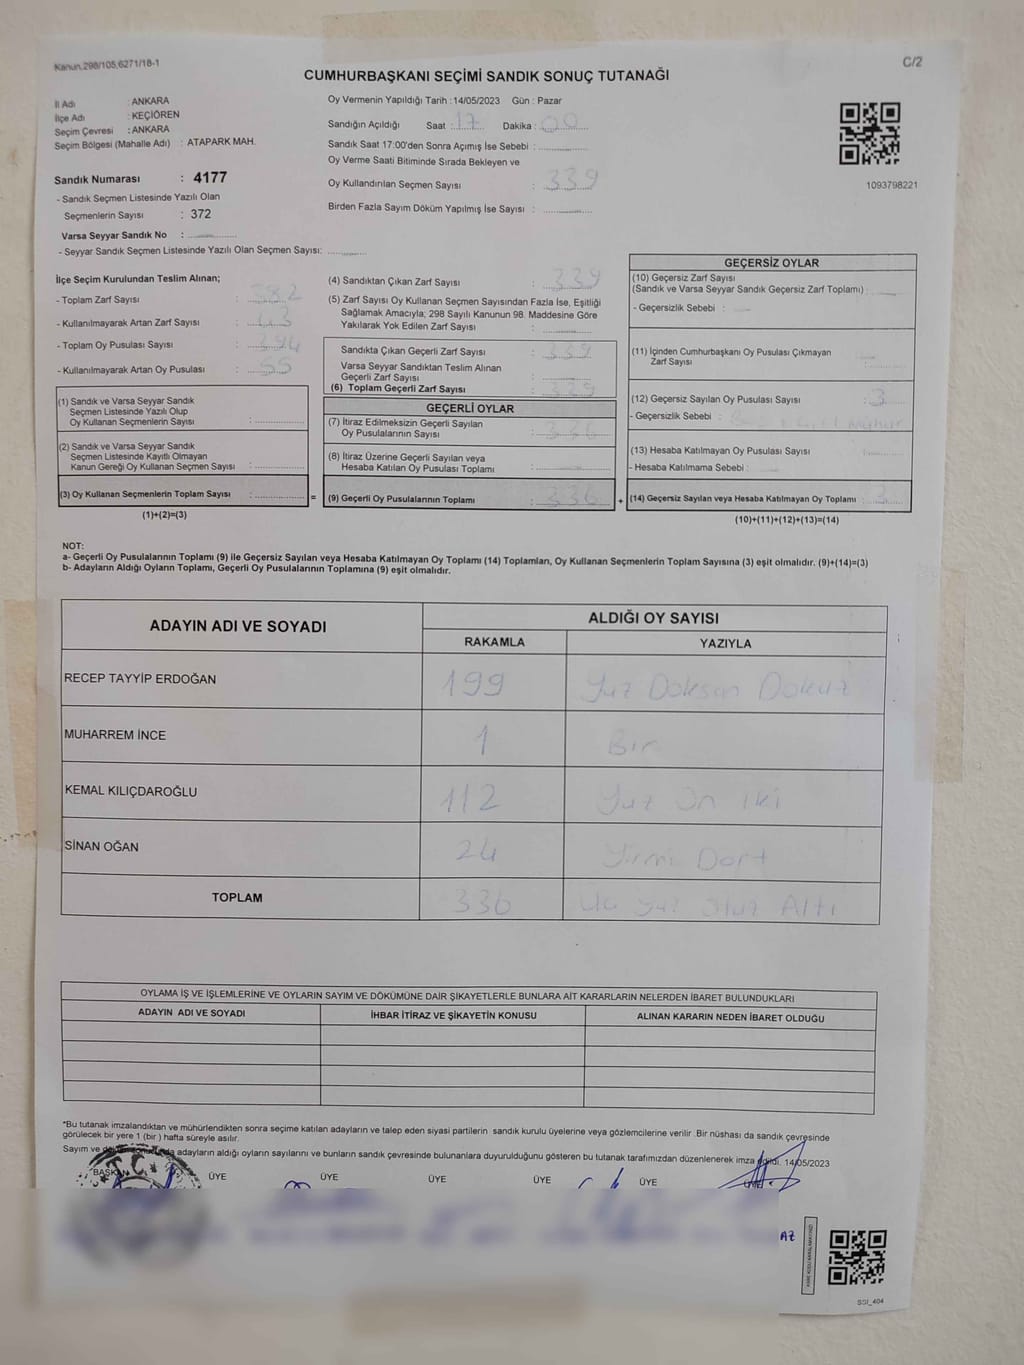 Kanun.298/105,6271/18-1
C/2
CUMHURBAŞKANI SEÇİMİ SANDIK SONUÇ TUTANAĞI
İl Adı : ANKARA
İlçe Adı : KEÇİÖREN
Seçim Çevresi : ANKARA
Seçim Bölgesi (Mahalle Adı) : ATAPARK MAH.
Sandık Numarası : 4177
- Sandık Seçmen Listesinde Yazılı Olan
Seçmenlerin Sayısı : 372
Varsa Seyyar Sandık No :
- Seyyar Sandık Seçmen Listesinde Yazılı Olan Seçmen Sayısı:
Oy Vermenin Yapıldığı Tarih : 14/05/2023 Gün : Pazar
Sandığın Açıldığı Saat : 17 Dakika : 00
Sandık Saat 17:00'den Sonra Açımış İse Sebebi :
Oy Verme Saati Bitiminde Sırada Bekleyen ve
Oy Kullandırılan Seçmen Sayısı : 339
Birden Fazla Sayım Döküm Yapılmış İse Sayısı :
1093798221
İlçe Seçim Kurulundan Teslim Alınan;
- Toplam Zarf Sayısı : 382
- Kullanılmayarak Artan Zarf Sayısı : 43
- Toplam Oy Pusulası Sayısı : 394
- Kullanılmayarak Artan Oy Pusulası : 55
(1) Sandık ve Varsa Seyyar Sandık
Seçmen Listesinde Yazılı Olup
Oy Kullanan Seçmenlerin Sayısı :
(2) Sandık ve Varsa Seyyar Sandık
Seçmen Listesinde Kayıtlı Olmayan
Kanun Gereği Oy Kullanan Seçmen Sayısı :
(3) Oy Kullanan Seçmenlerin Toplam Sayısı :
(1)+(2)=(3)
(4) Sandıktan Çıkan Zarf Sayısı : 339
(5) Zarf Sayısı Oy Kullanan Seçmen Sayısından Fazla İse, Eşitliği
Sağlamak Amacıyla; 298 Sayılı Kanunun 98. Maddesine Göre
Yakılarak Yok Edilen Zarf Sayısı :
Sandıkta Çıkan Geçerli Zarf Sayısı : 339
Varsa Seyyar Sandıktan Teslim Alınan
Geçerli Zarf Sayısı :
(6) Toplam Geçerli Zarf Sayısı : 339
GEÇERLİ OYLAR
(7) İtiraz Edilmeksizin Geçerli Sayılan
Oy Pusulalarının Sayısı : 336
(8) İtiraz Üzerine Geçerli Sayılan veya
Hesaba Katılan Oy Pusulası Toplamı :
= (9) Geçerli Oy Pusulalarının Toplamı : 336 +
GEÇERSİZ OYLAR
(10) Geçersiz Zarf Sayısı
(Sandık ve Varsa Seyyar Sandık Geçersiz Zarf Toplamı) :
- Geçersizlik Sebebi :
(11) İçinden Cumhurbaşkanı Oy Pusulası Çıkmayan
Zarf Sayısı :
(12) Geçersiz Sayılan Oy Pusulası Sayısı : 3
- Geçersizlik Sebebi :
(13) Hesaba Katılmayan Oy Pusulası Sayısı :
- Hesaba Katılmama Sebebi :
(14) Geçersiz Sayılan veya Hesaba Katılmayan Oy Toplamı : 3
(10)+(11)+(12)+(13)=(14)
NOT:
a- Geçerli Oy Pusulalarının Toplamı (9) ile Geçersiz Sayılan veya Hesaba Katılmayan Oy Toplamı (14) Toplamları, Oy Kullanan Seçmenlerin Toplam Sayısına (3) eşit olmalıdır. (9)+(14)=(3)
b- Adayların Aldığı Oyların Toplamı, Geçerli Oy Pusulalarının Toplamına (9) eşit olmalıdır.
ADAYIN ADI VE SOYADI
ALDIĞI OY SAYISI
RAKAMLA YAZIYLA
RECEP TAYYİP ERDOĞAN 199 Yüz Doksan Dokuz
MUHARREM İNCE 1 Bir
KEMAL KILIÇDAROĞLU 112 Yüz On İki
SİNAN OĞAN 24 Yirmi Dört
TOPLAM 336 Üç yüz Otuz Altı
OYLAMA İŞ VE İŞLEMLERİNE VE OYLARIN SAYIM VE DÖKÜMÜNE DAİR ŞİKAYETLERLE BUNLARA AİT KARARLARIN NELERDEN İBARET BULUNDUKLARI
ADAYIN ADI VE SOYADI İHBAR İTİRAZ VE ŞİKAYETİN KONUSU ALINAN KARARIN NEDEN İBARET OLDUĞU
*Bu tutanak imzalandıktan ve mühürlendikten sonra seçime katılan adayların ve talep eden siyasi partilerin sandık kurulu üyelerine veya gözlemcilerine verilir .Bir nüshası da sandık çevresinde
görülecek bir yere 1 (bir ) hafta süreyle asılır.
Sayım ve döküm sonucunda adayların aldığı oyların sayılarını ve bunların sandık çevresinde bulunanlara duyurulduğunu gösteren bu tutanak tarafımızdan düzenlenerek imza edildi. 14/05/2023
BAŞKAN ÜYE ÜYE ÜYE ÜYE ÜYE ÜYE
T.C.
AZ
SSI_404